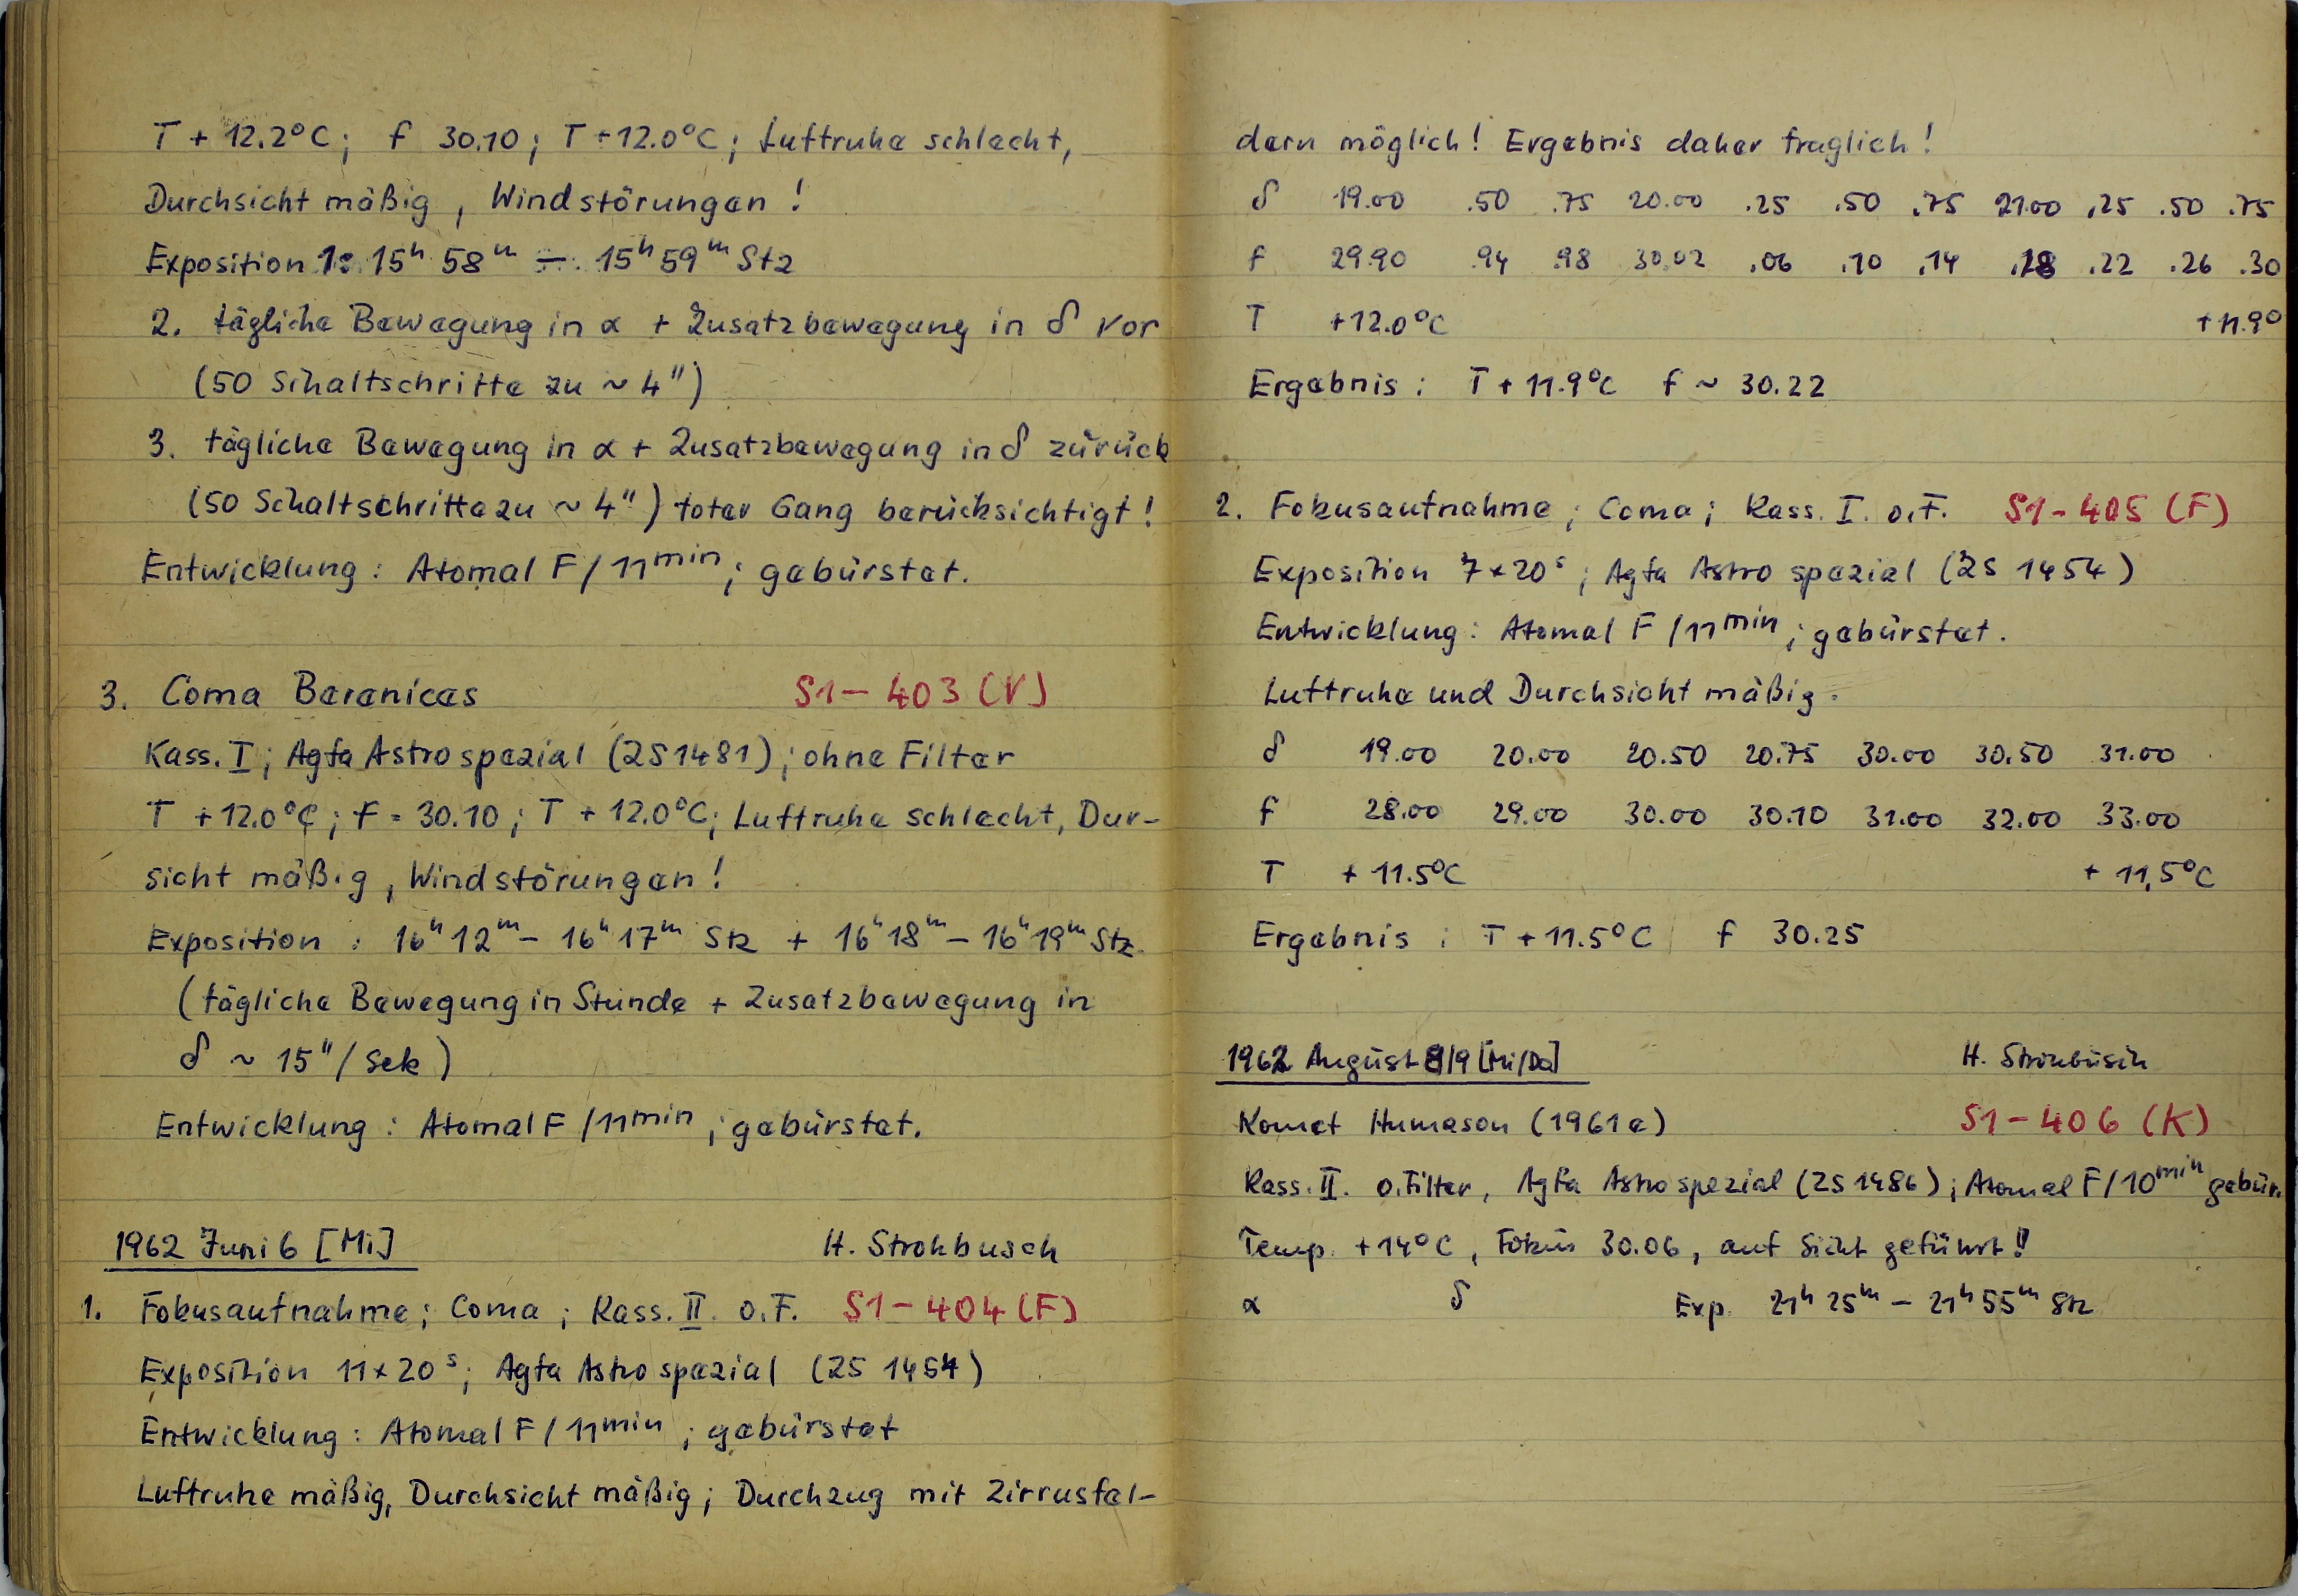 T + 12.2°C; f 30.10; T + 12.0°C; Luftruhe schlecht,
Durchsicht mäßig, Windstörungen!
Exposition 1: 15ʰ 58ᵐ – 15ʰ 59ᵐ Stz
2. tägliche Bewegung in α + Zusatzbewegung in δ vor
(50 Schaltschritte zu ~ 4")
3. tägliche Bewegung in α + Zusatzbewegung in δ zurück
(50 Schaltschritte zu ~ 4") toter Gang berücksichtigt!
Entwicklung: Atomal F / 11ᵐⁱⁿ; gebürstet.
3. Coma Berenices S1 – 403 (V)
Kass. I; Agfa Astro spezial (ZS 1481); ohne Filter
T + 12.0°C; f = 30.10; T + 12.0°C; Luftruhe schlecht, Dur-
sicht mäßig, Windstörungen!
Exposition: 16ʰ 12ᵐ – 16ʰ 17ᵐ Stz + 16ʰ 18ᵐ – 16ʰ 19ᵐ Stz
(tägliche Bewegung in Stunde + Zusatzbewegung in
δ ~ 15"/Sek)
Entwicklung: Atomal F / 11ᵐⁱⁿ; gebürstet.
1962 Juni 6 [Mi] H. Strohbusch
1. Fokusaufnahme; Coma; Kass. II. o.F. S1 – 404 (F)
Exposition 11 × 20ˢ; Agfa Astro spezial (ZS 1454)
Entwicklung: Atomal F / 11ᵐⁱⁿ; gebürstet
Luftruhe mäßig, Durchsicht mäßig; Durchzug mit Zirrusfel-
dern möglich! Ergebnis daher fraglich!
δ 19.00 .50 .75 20.00 .25 .50 .75 21.00 .25 .50 .75
f 29.90 .94 .98 30.02 .06 .10 .14 .18 .22 .26 .30
T +12.0°C +11.9°
Ergebnis: T + 11.9°C f ~ 30.22
2. Fokusaufnahme; Coma; Kass. I. o.F. S1 – 405 (F)
Exposition 7 × 20ˢ; Agfa Astro spezial (ZS 1454)
Entwicklung: Atomal F / 11ᵐⁱⁿ; gebürstet.
Luftruhe und Durchsicht mäßig.
δ 19.00 20.00 20.50 20.75 30.00 30.50 31.00
f 28.00 29.00 30.00 30.10 31.00 32.00 33.00
T + 11.5°C + 11,5°C
Ergebnis: T + 11.5°C f 30.25
1962 August 8/9 [Mi/Do] H. Strohbusch
Komet Humason (1961e) S1 – 406 (K)
Kass. II. o. Filter, Agfa Astro spezial (ZS 1486); Atomal F/10ᵐⁱⁿ gebür.
Temp. +14°C, Fokus 30.06, auf Sicht geführt!!
α δ Exp. 21ʰ 25ᵐ – 21ʰ 55ᵐ Stz